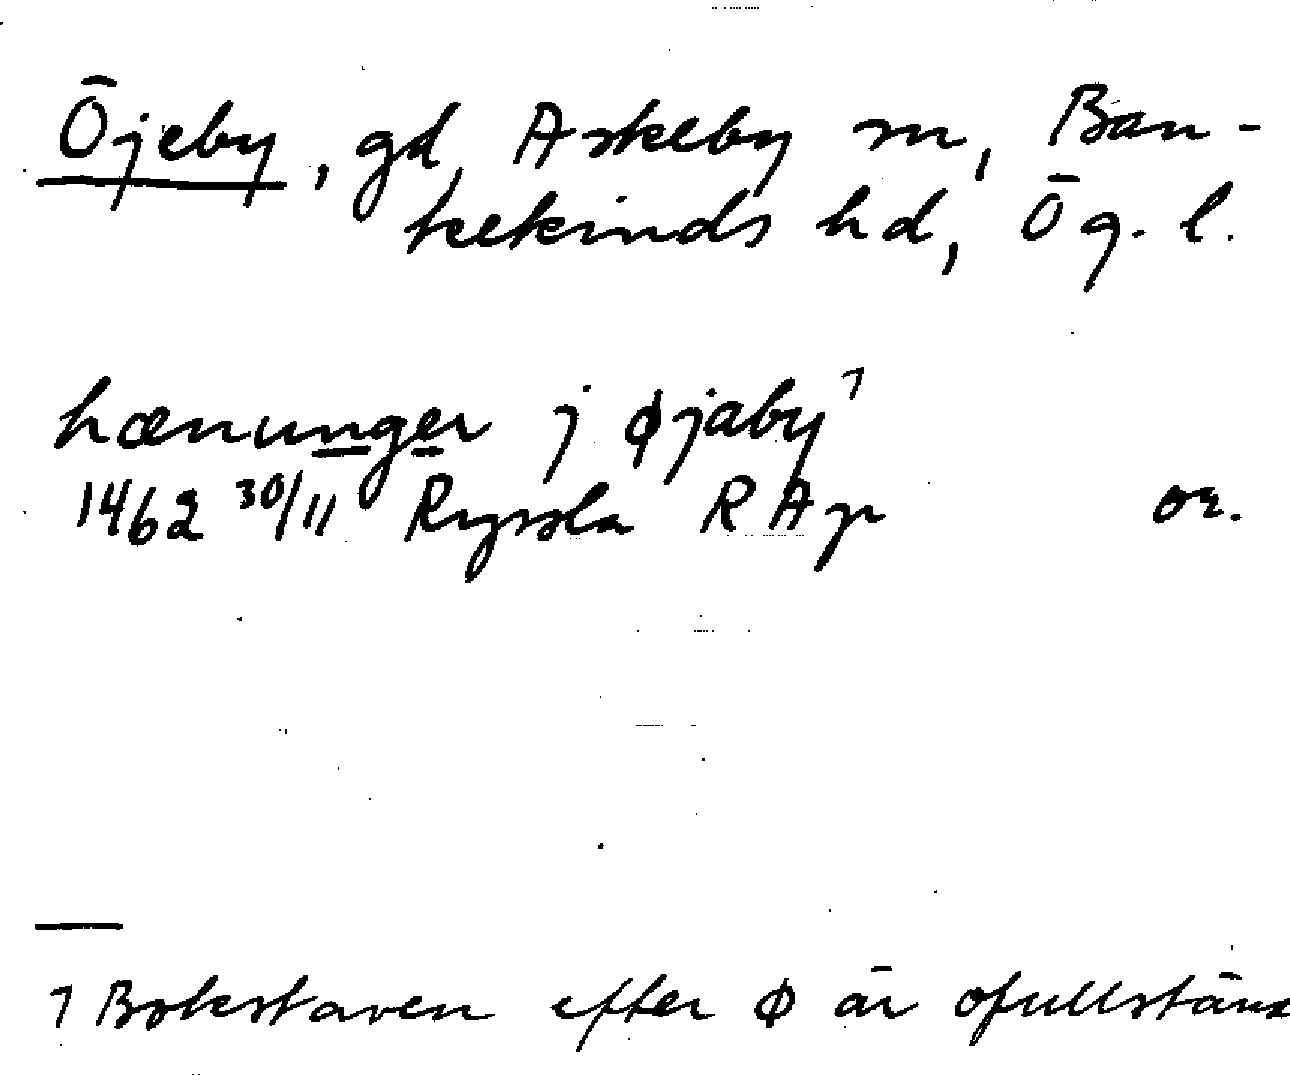 Öjeby, gd, Askeby sn, Ban-
kekinds hd, Ög. l.
hænunger j øjaby 1
1462 30/11 Ryssla RAp or.
1 Bokstaven efter ø är ofullstän